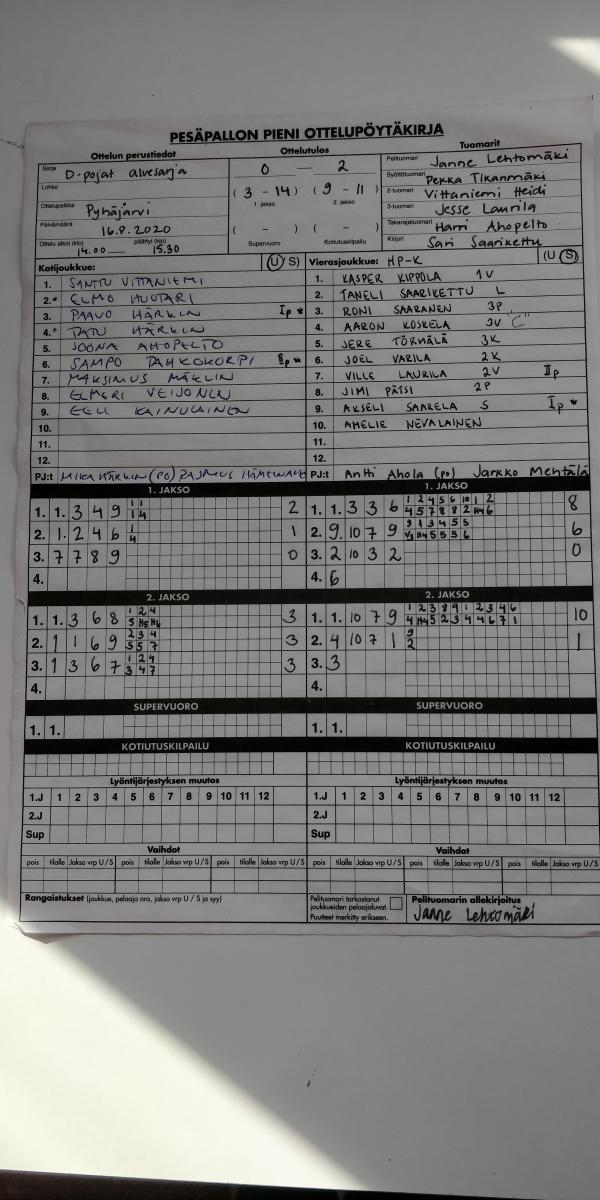 PESÄPALLON PIENI OTTELUPÖYTÄKIRJA
Ottelun perustiedot Ottelutulos Tuomarit
Sarja D-pojat aluesarja 0 — 2 Pelituomari Janne Lehtomäki
Lohko (3 - 14) (9 - 11) Syöttötuomari Pekka Tikanmäki
1. jakso 2. jakso 2-tuomari Vittaniemi Heidi
Ottelupaikka Pyhäjärvi 3-tuomari Jesse Laurila
Päivämäärä 16.8.2020 ( - ) ( - ) Takarajatuomari Harri Ahopelto
Ottelu alkoi (klo) 14.00 päättyi (klo) 15.30 Supervuoro Kotiutuskilpailu Kirjuri Sari Saarikettu
Kotijoukkue: (U S) Vierasjoukkue: HP-K (U S)
1. SANTTU VITTANIEMI 1. KASPER KIPPOLA 1V
2. ELMO HUOTARI 2. TANELI SAARIKETTU L
3. PAAVO HÄRKIN Ip * 3. RONI SAARANEN 3P
4. TATU HÄRKIN 4. AARON KOSKELA 3V "C"
5. JOONA AHOPELTO 5. JERE TÖRMÄLÄ 3K
6. SAMPO TAHKOKORPI IIp * 6. JOEL VARILA 2K
7. MAKSIMUS MÄKLIN 7. VILLE LAURILA 2V IIp
8. ELMERI VEIJONEN 8. JIMI PÄTSI 2P
9. EELI KAINULAINEN 9. AKSELI SAARELA S Ip *
10. 10. AMELIE NEVALAINEN
11. 11.
12. 12.
PJ:t MIKA HÄRKIN (PO) RASMUS PJ:t Antti Ahola (po) Jarkko Mehtälä
1. JAKSO 1. JAKSO
1. 1. 3 4 9 1 1 2 1. 1. 3 3 6 1 2 4 5 6 10 1 2 8
1 4 4 5 7 8 8 2 H4 6
2. 1. 2 4 6 1 1 2. 9. 10 7 9 9 1 3 4 5 5 6
4 V3 H4 5 5 5 6
3. 7 7 8 9 0 3. 2 10 3 2 0
4. 4. 6
2. JAKSO 2. JAKSO
1. 1. 3 6 8 1 2 4 3 1. 1. 10 7 9 1 2 3 8 9 1 2 3 4 6 10
5 H5 H6 4 H4 5 2 3 4 4 6 7 1
2. 1 1 6 9 2 3 4 3 2. 4 10 7 1 9 1
5 5 7 2
3. 1 3 6 7 1 2 4 3 3. 3
3 4 7
4. 4.
SUPERVUORO SUPERVUORO
1. 1. 1. 1.
KOTIUTUSKILPAILU KOTIUTUSKILPAILU
Lyöntijärjestyksen muutos Lyöntijärjestyksen muutos
1.J 1 2 3 4 5 6 7 8 9 10 11 12 1.J 1 2 3 4 5 6 7 8 9 10 11 12
2.J 2.J
Sup Sup
Vaihdot Vaihdot
pois tilalle Jakso vrp U / S pois tilalle Jakso vrp U / S pois tilalle Jakso vrp U / S pois tilalle Jakso vrp U / S pois tilalle Jakso vrp U / S pois tilalle Jakso vrp U / S
Rangaistukset (joukkue, pelaaja nro, jakso vrp U / S ja syy) Pelituomari tarkastanut Pelituomarin allekirjoitus
joukkueiden pelaajaluvat.
Puutteet merkitty erikseen. Janne Lehtomäki